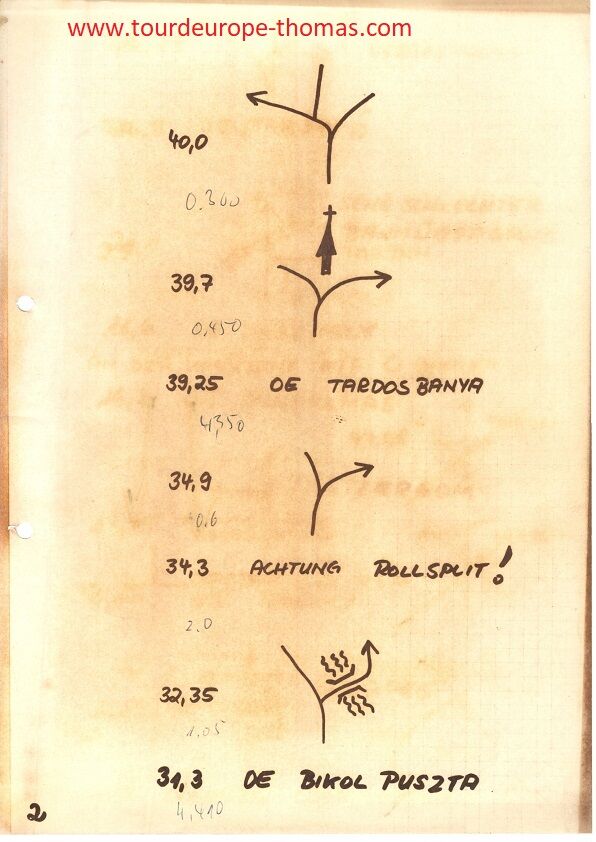 www.tourdeurope-thomas.com
40,0
0.300
39,7
0,450
39,25 OE TARDOSBANYA
4,350
34,9
0,6
34,3 ACHTUNG ROLLSPLIT!
2.0
32,35
1,05
31,3 OE BIKOL PUSZTA
4,410
2